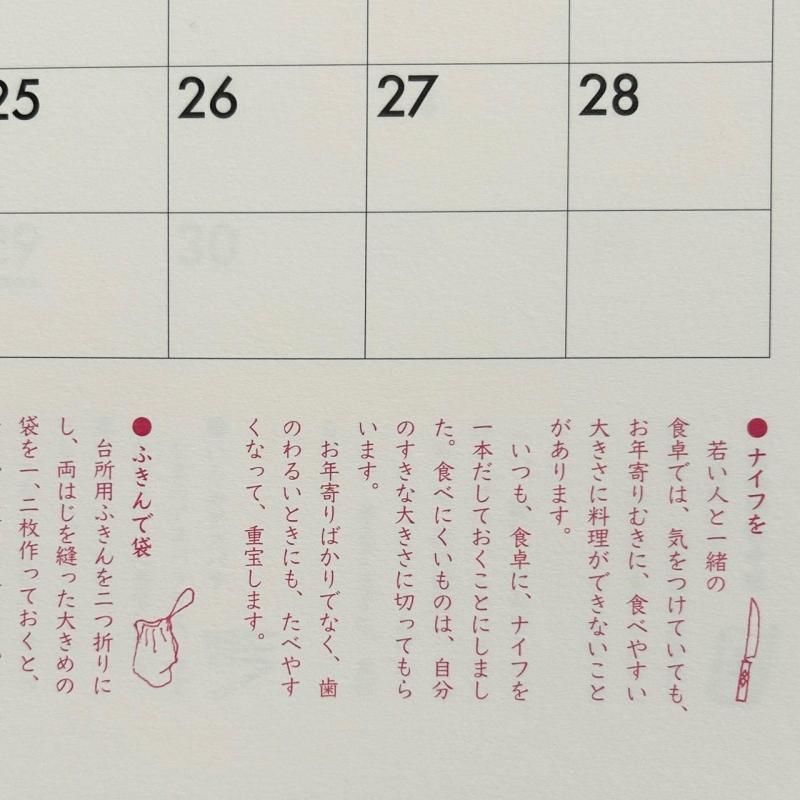 25
26
27
28
29
30
●ナイフを
若い人と一緒の
食卓では、気をつけていても、
お年寄りむきに、食べやすい
大きさに料理ができないこと
があります。
いつも、食卓に、ナイフを
一本だしておくことにしまし
た。食べにくいものは、自分
のすきな大きさに切ってもら
います。
お年寄りばかりでなく、歯
のわるいときにも、たべやす
くなって、重宝します。
●ふきんで袋
台所用ふきんを二つ折りに
し、両はじを縫った大きめの
袋を一、二枚作っておくと、